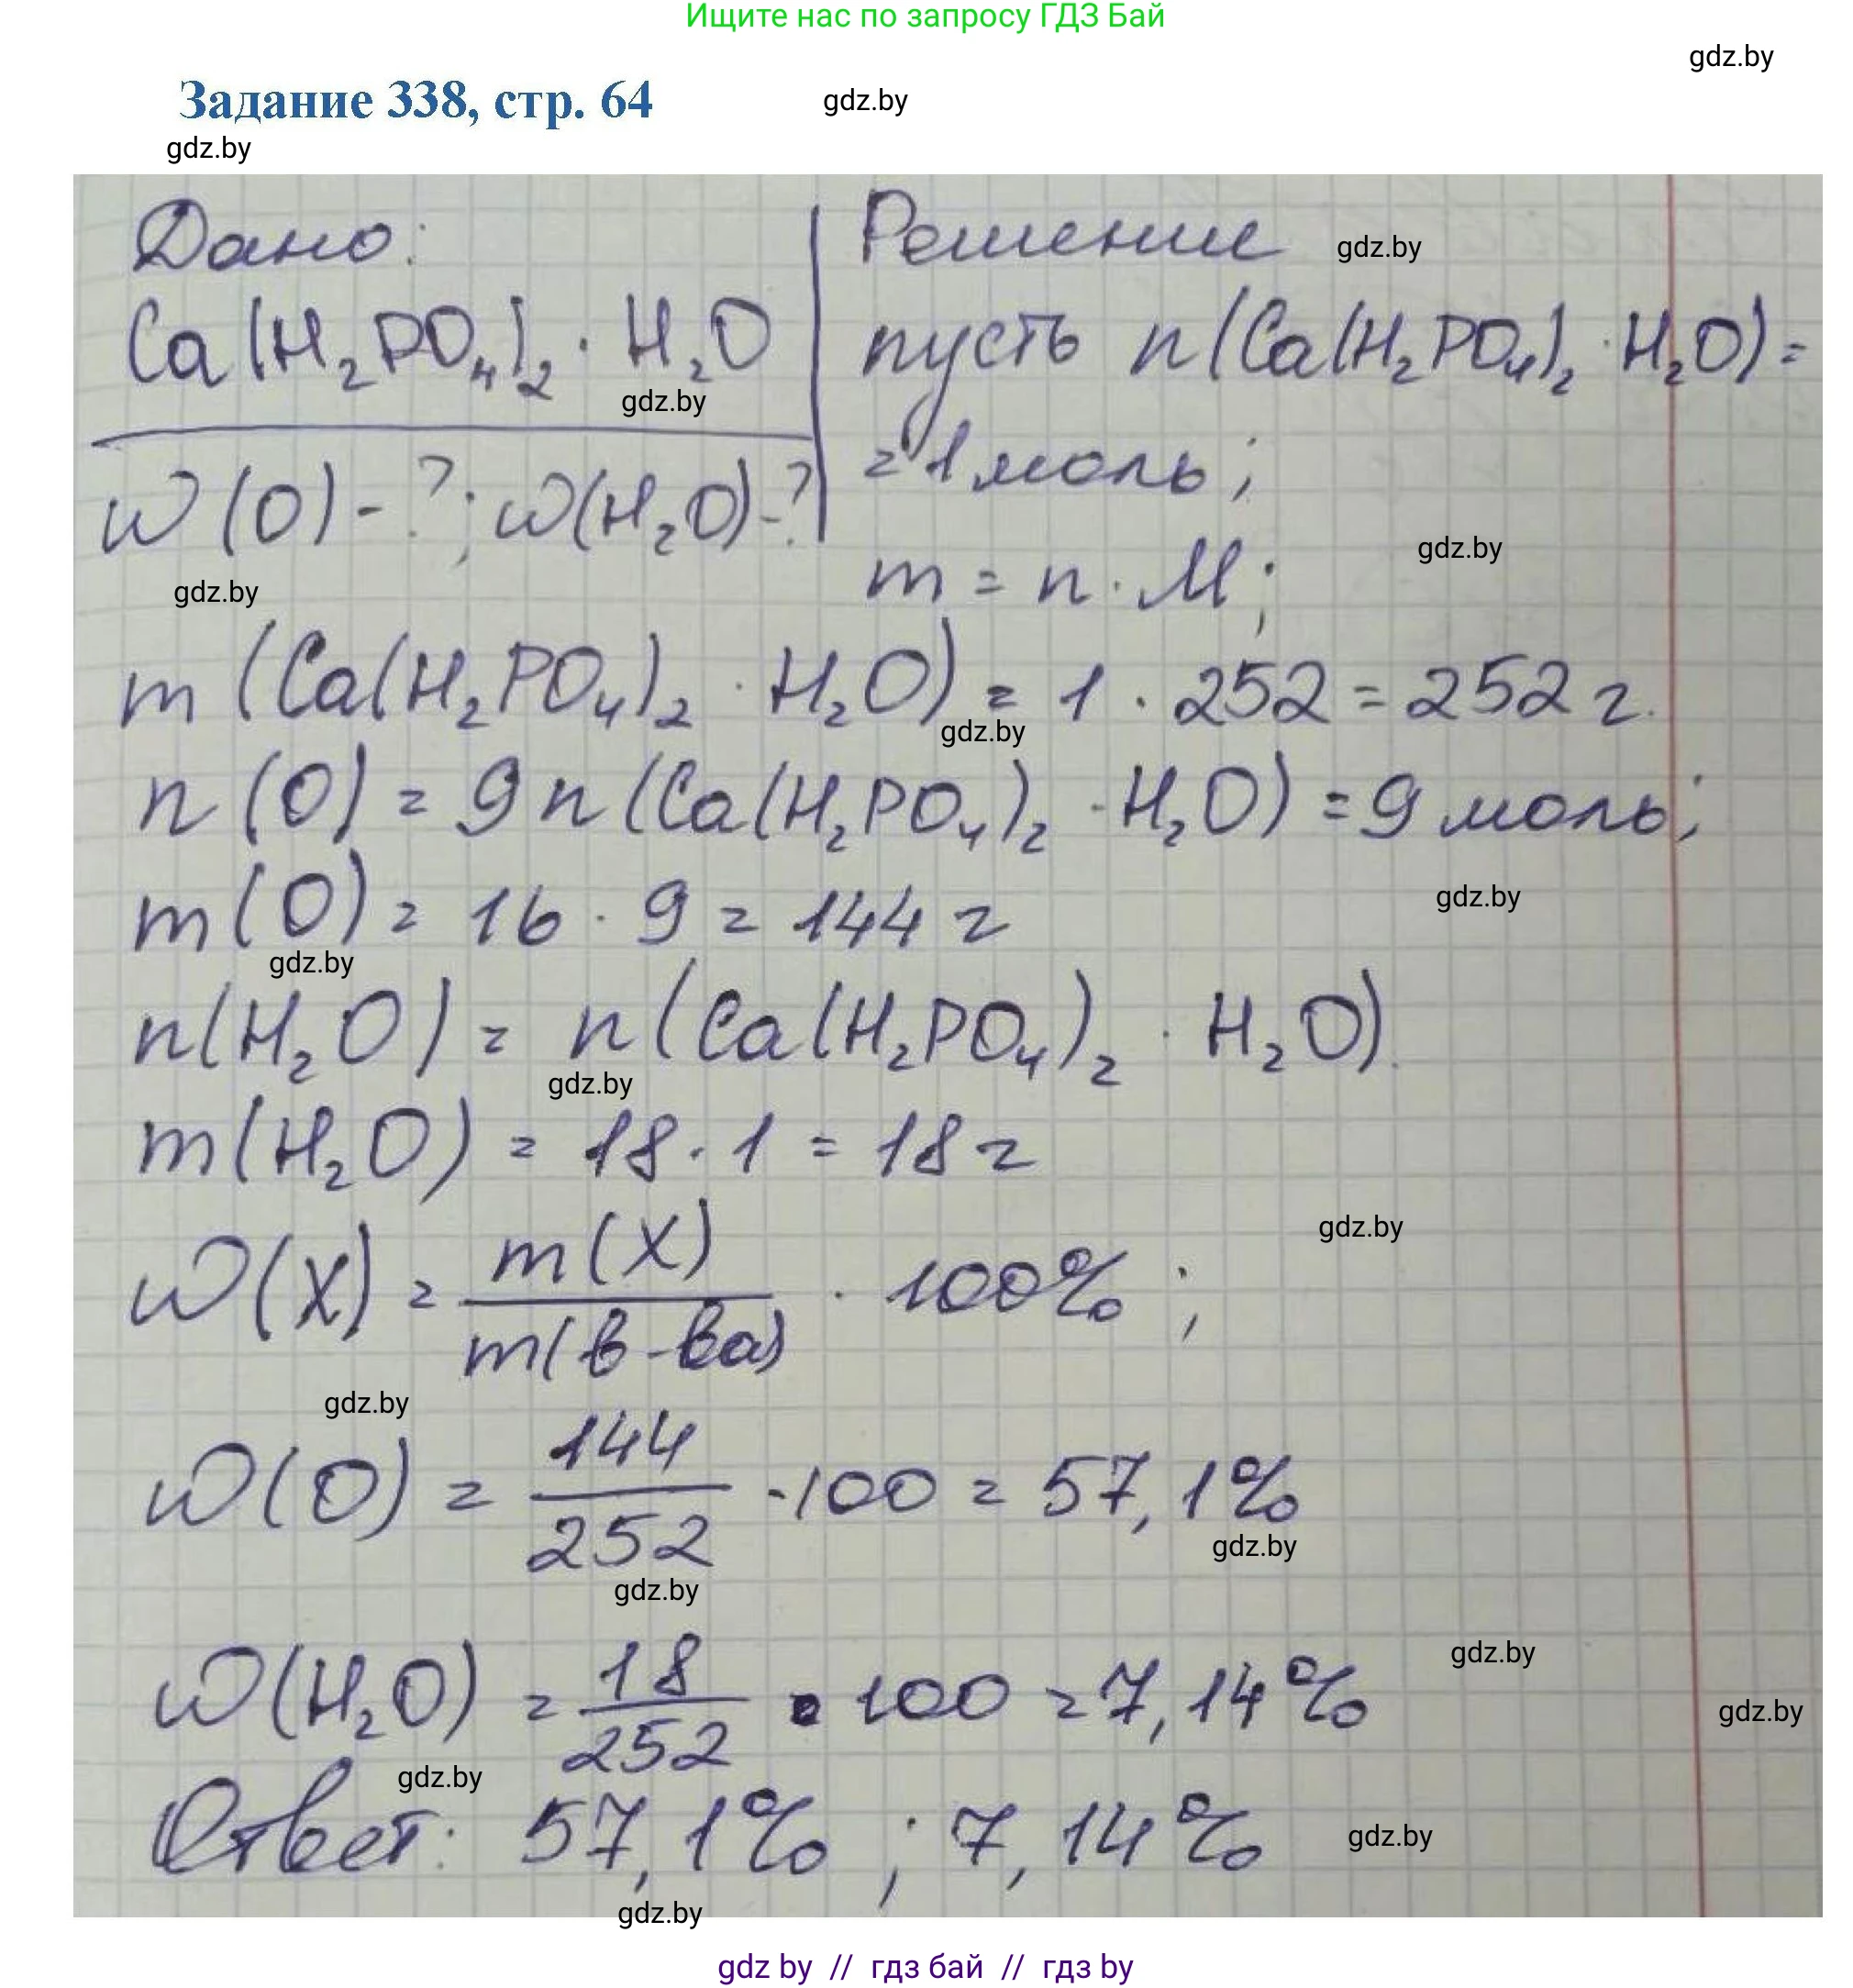 Ищите нас по запросу ГДЗ Бай
gdz.by
Задание 338, стр. 64
gdz.by
gdz.by
Дано:
Ca(H₂PO₄)₂ · H₂O
gdz.by
W(O) - ?; W(H₂O) - ?
gdz.by
Решение
gdz.by
пусть n(Ca(H₂PO₄)₂ · H₂O) =
= 1 моль;
gdz.by
m = n · M;
m(Ca(H₂PO₄)₂ · H₂O) = 1 · 252 = 252 г.
gdz.by
n(O) = 9n(Ca(H₂PO₄)₂ · H₂O) = 9 моль;
gdz.by
m(O) = 16 · 9 = 144 г
gdz.by
n(H₂O) = n(Ca(H₂PO₄)₂ · H₂O).
gdz.by
m(H₂O) = 18 · 1 = 18 г
gdz.by
W(X) = m(X) / m(в-ва) · 100%;
gdz.by
W(O) = 144 / 252 · 100 = 57,1%
gdz.by
gdz.by
W(H₂O) = 18 / 252 · 100 = 7,14%
gdz.by
gdz.by
gdz.by
Ответ: 57,1% ; 7,14%
gdz.by
gdz.by
gdz by // гдз бай // гдз by